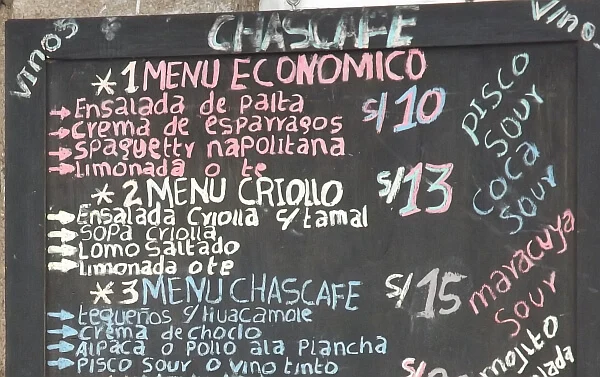 Vinos
CHASCAFE
Vinos
* 1 MENU ECONOMICO
S/10
Ensalada de palta
Crema de esparragos
Spaguetty napolitana
Limonada o te
* 2 MENU CRIOLLO
S/13
Ensalada Criolla S/tamal
Sopa criolla
Lomo Saltado
limonada o te
* 3 MENU CHASCAFE
S/15
tequeños S/Huacamole
Crema de choclo
Alpaca o Pollo ala Plancha
Pisco Sour o vino tinto
Pisco
Sour
Coca
Sour
maracuya
Sour
mojito